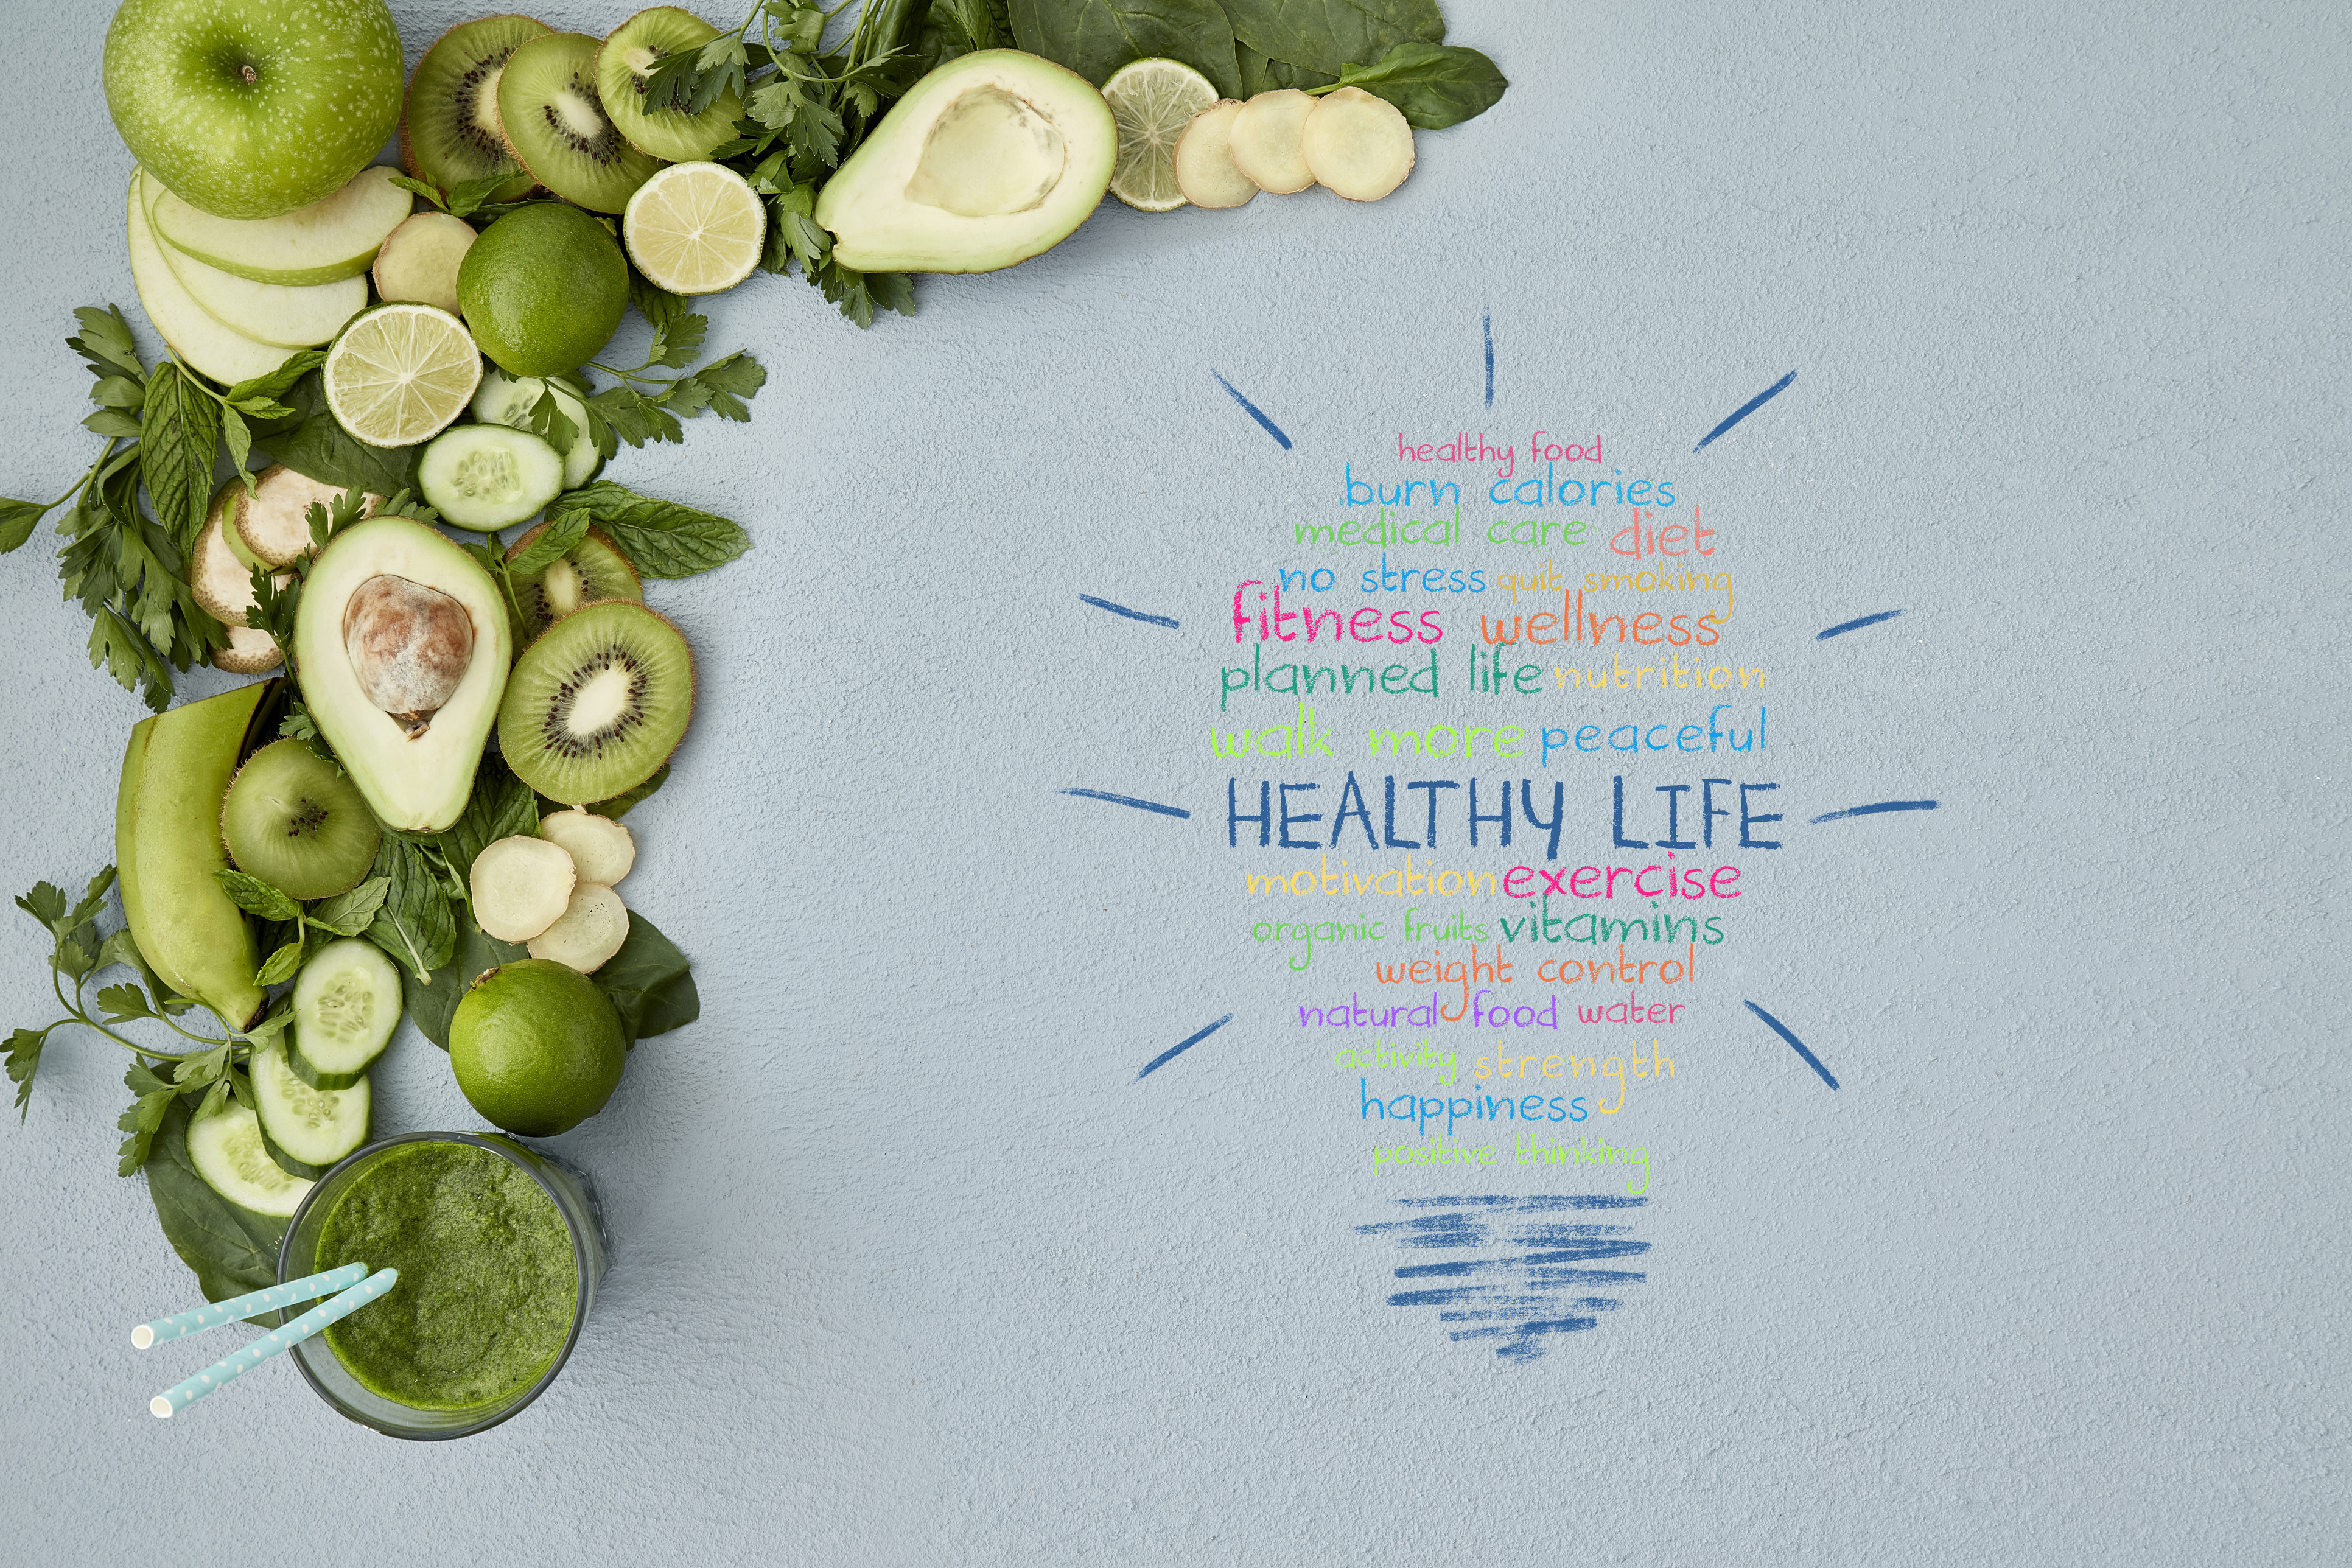 healthy food
burn calories
medical care diet
no stress quit smoking
fitness wellness
planned life nutrition
walk more peaceful
HEALTHY LIFE
motivation exercise
organic fruits vitamins
weight control
natural food water
activity strength
happiness
positive thinking